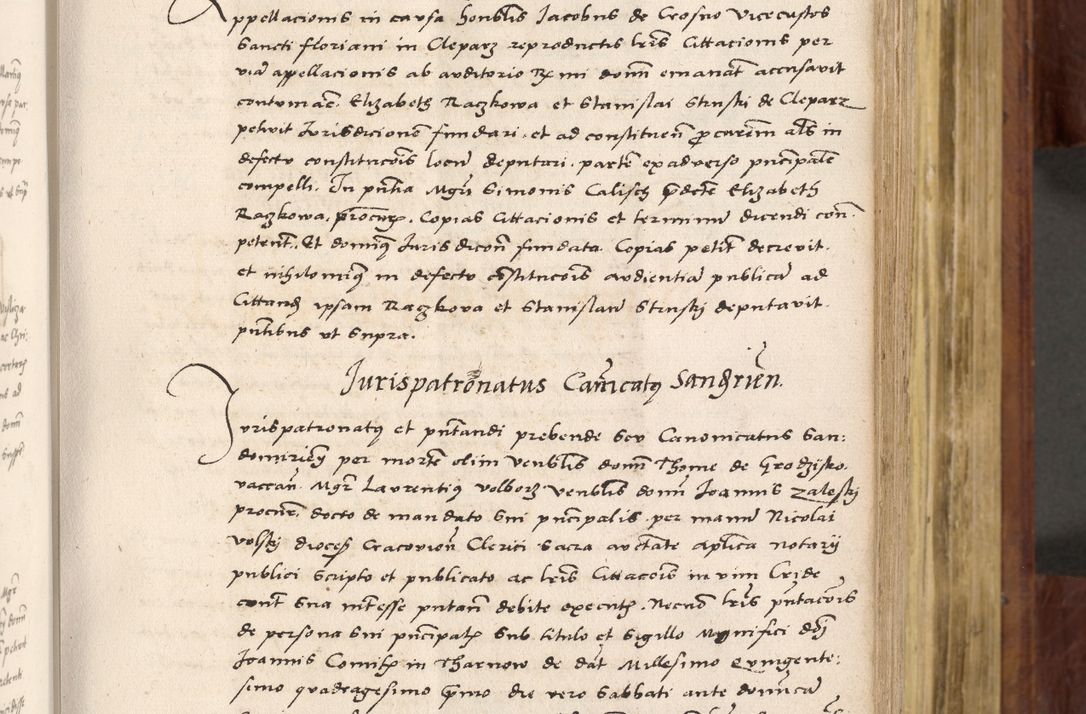 Appellacionis in causa honblis Jacobus de Crosno vicecustos
Sancti floriani in Cleparz reproductis lris Cittacionis per
via appellacionis ab auditorio Rmi domi emanat accusauit
contumac. Elizabeth Raczkowa et Stanislai Strnski de Cleparz
petiuit Jurisdicionem fundari. et ad constituen procurem als in
defectu constitucois locu deputari. parte ex aduerso pncipale
compelli. In pntia Mgri Simonis Calisch predcte Elizabeth
Raczkowa, procur. Copias Cittacionis et terminu dicendi con.
petent. Et dominq Jurisdicon fundata. Copias petit decreuit.
et nihilominq in defectu constitucois audientia publica ad
Cittand ipsam Raczkova et Stanislau Strnskj deputauit.
pntibus ut supra.
Jurispatronatus Canicatq Sandrien.
Jurispatronatq et pntandi prebende Seu Canonicatus San:
domirien per morte olim venblis domi Thome de Grodzisko.
vaccan. Mgr Laurentiq volborz venblis domi Joannis Zaleskj
procur. docto de mandato sui pncipalis. per manu Nicolai
volskj dioces Cracouien Clerici Sacra auctate aplica notarij
publici scripto et publicato ac lris Cittacois in vim Cride
cont sua intesse putan debite executs. Necno lris pntacois
de persona sui pncipals sub titulo et sigillo Magnifici doj
Joannis Comits in Tharnow de dat Millesimo Quingente:
simo quadragesimo primo die vero Sabbati ante domica